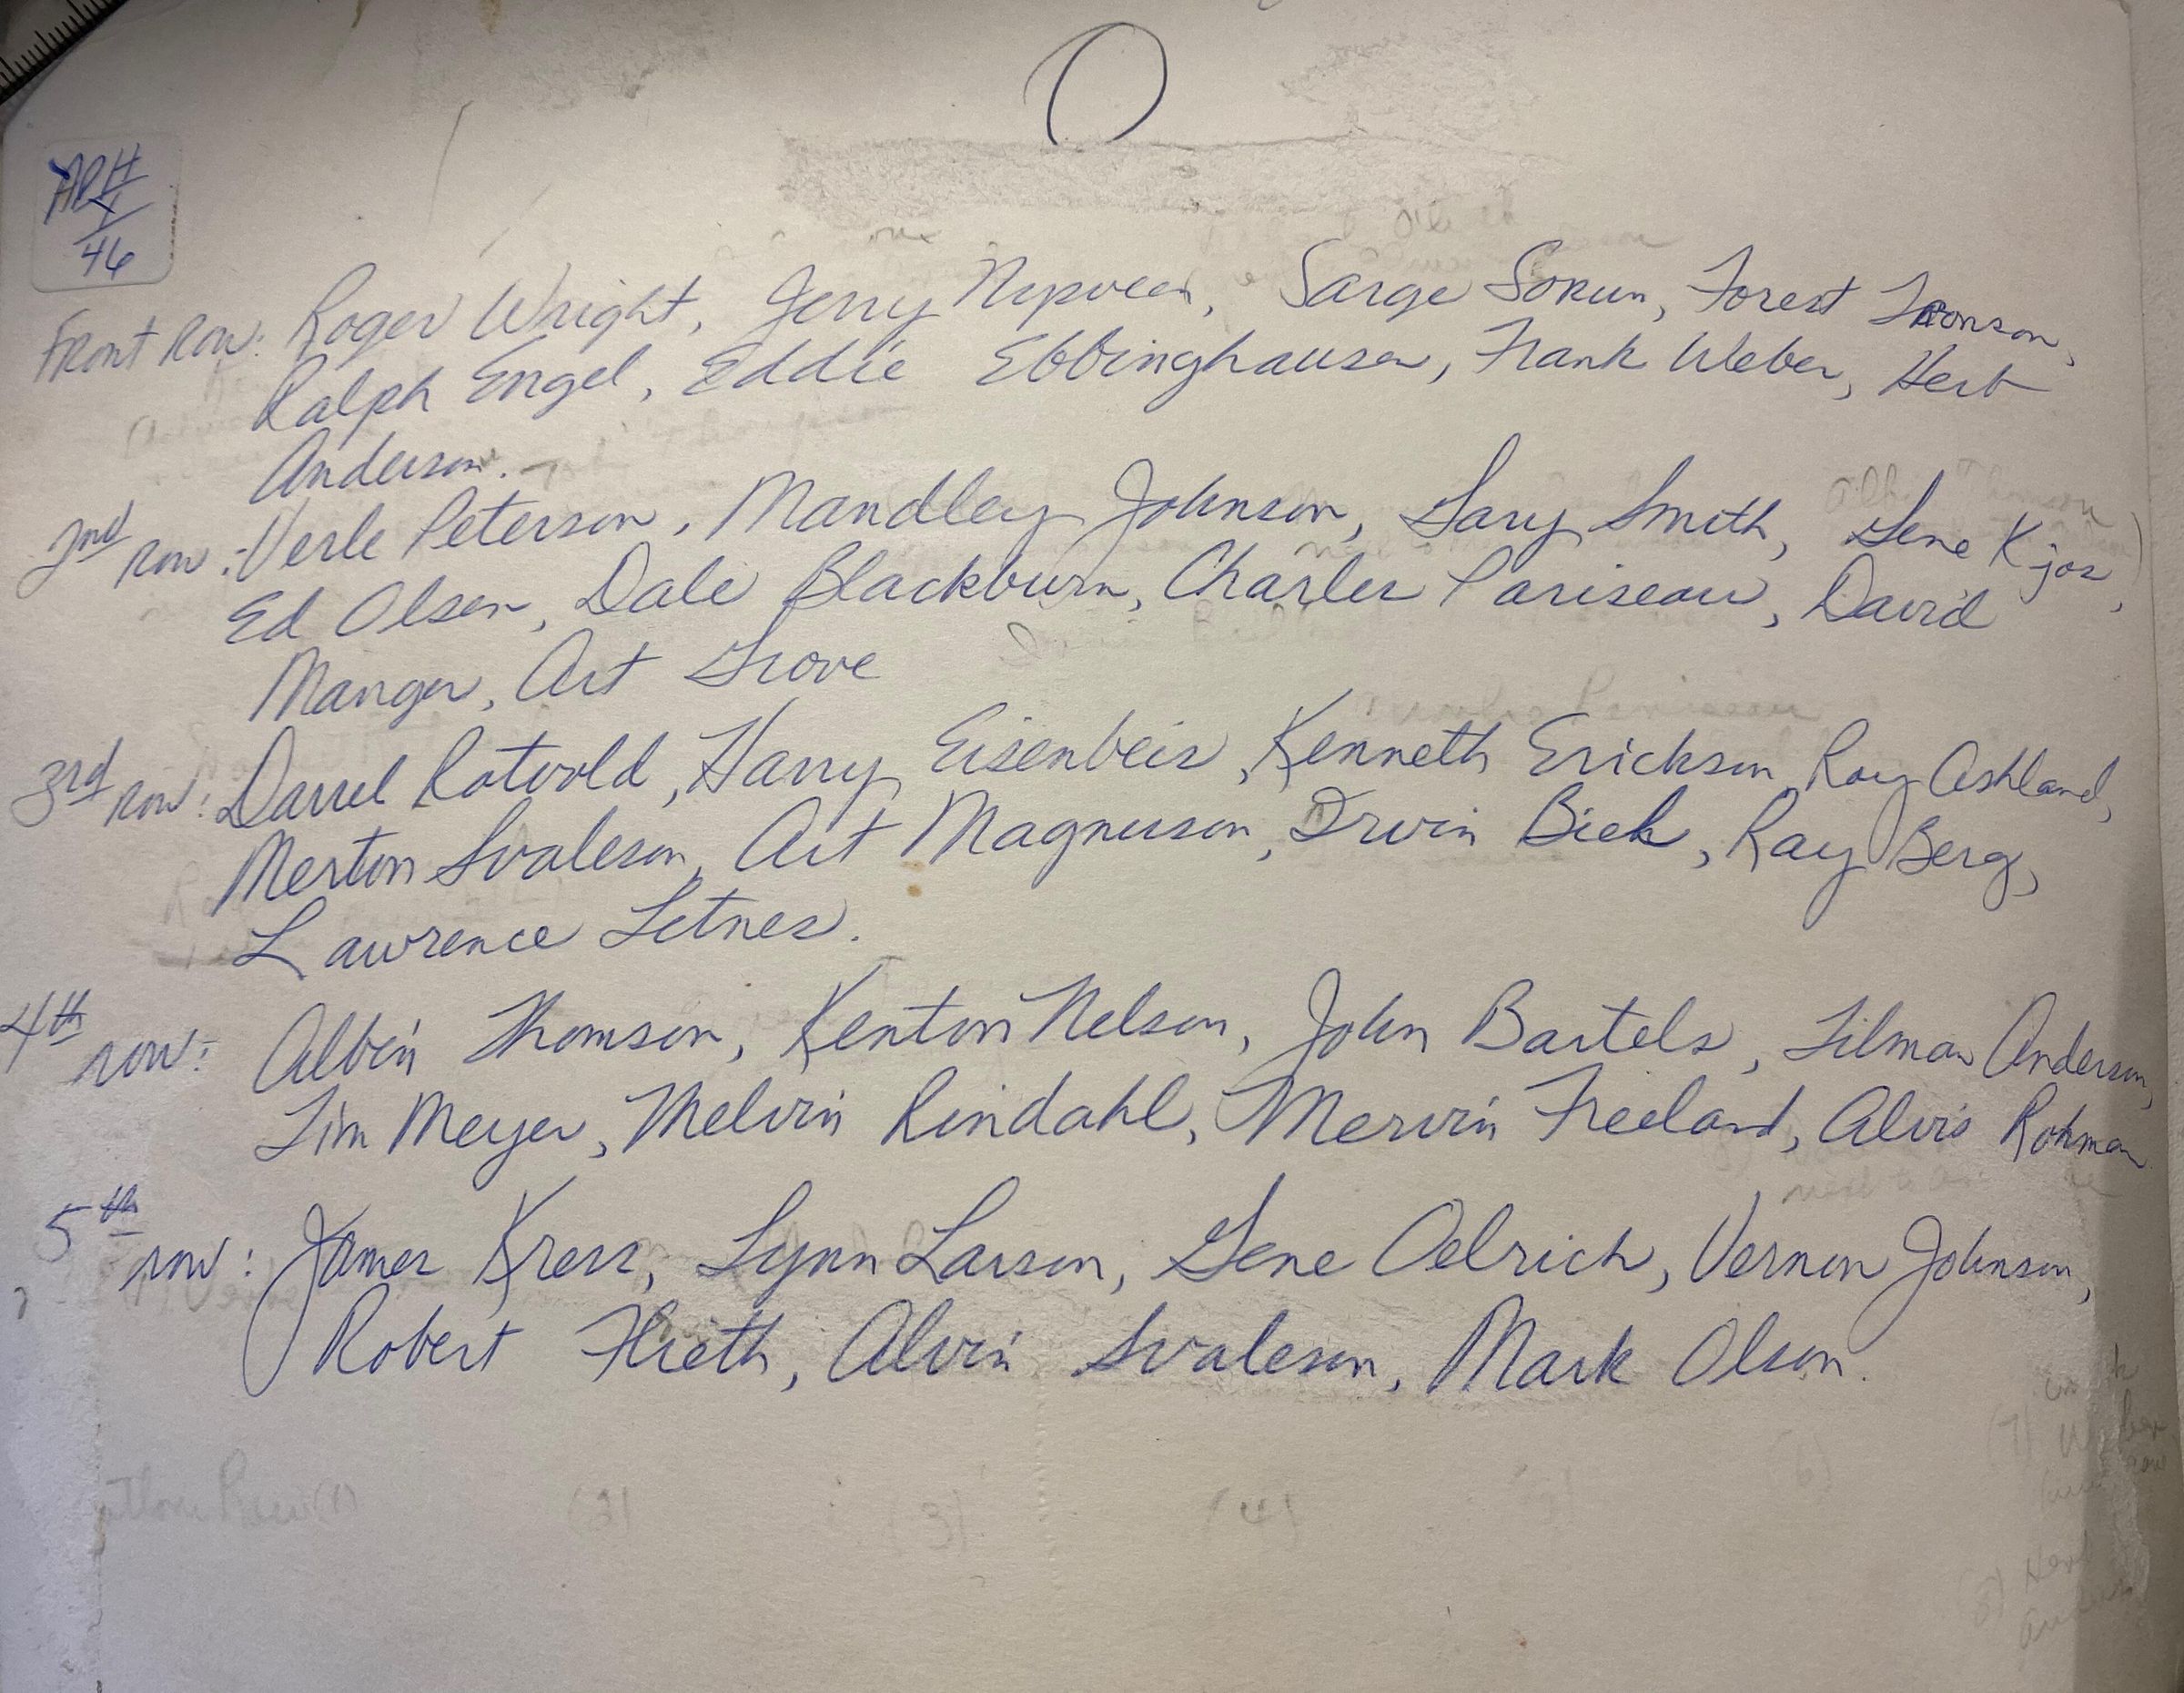 46
Front Row: Roger Wright, Jerry Sarge Forest
Ralph Engel, Eddie Ebbinghausen, Frank Weber, Herb
Anderson.
2nd row: Verle Peterson, Mandley Johnson, Gary Smith, Gene Kjos,
Ed Olson, Dale Blackburn, Charles Pariseau, David
Manger, Art Grove
3rd row: Darrel Rotvold, Harry Eisenbeis, Kenneth Erickson, Roy Ashland,
Merton Svaleson, Art Magnuson, Irvin Biek, Ray Berg,
Lawrence Letnes.
4th row: Albin Thomson, Kenton Nelson, John Bartels, Tilman Anderson,
Tim Meyer, Melvin Rindahl, Mervin Freeland, Alvis Rohman
5th row: James Kress, Lynn Larson, Gene Oelrich, Vernon Johnson,
Robert Flieth, Alvin Svaleson, Mark Olson.
(3)
(4)